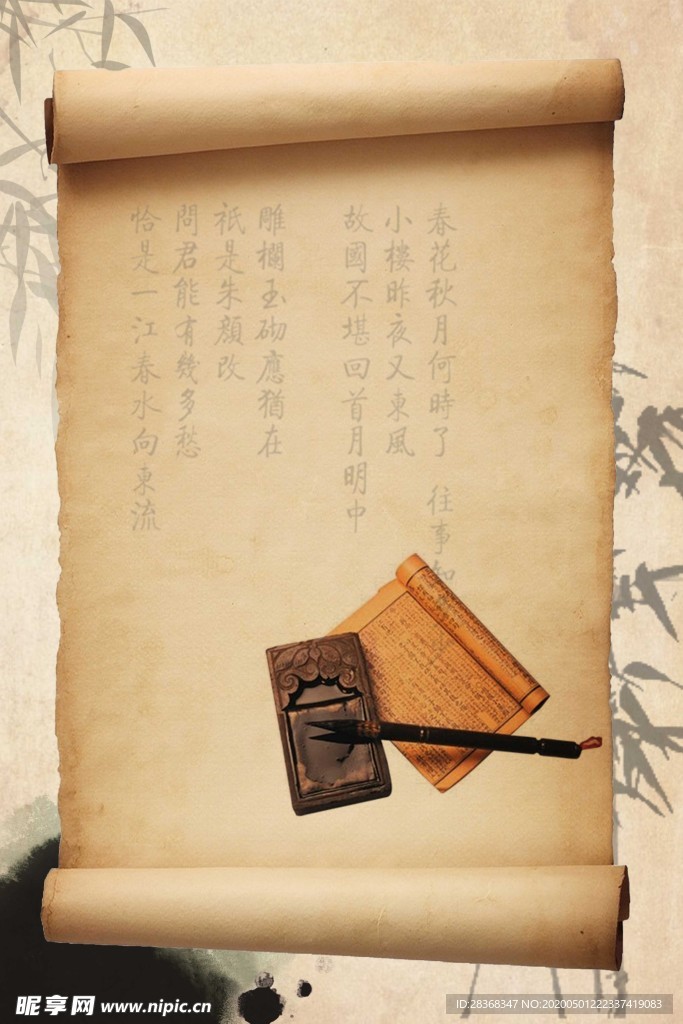 春花秋月何時了 往事知
小樓昨夜又東風
故國不堪回首月明中
雕欄玉砌應猶在
祇是朱顏改
問君能有幾多愁
恰是一江春水向東流
昵享网 www.nipic.cn
ID:28368347 NO:20200501222337419083